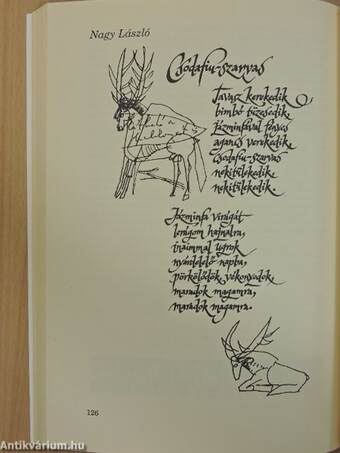 Nagy László
Csodafiu-szarvas
Tavasz kerekedik
bimbó tüzesedik,
jázminfával fényes
agancs verekedik,
csodafiu-szarvas
nekitülekedik,
nekitülekedik.
Jázminfa virágát
lerúgom hajnalra,
inaimmal ugrok
nyárdelelő napba,
pörkölődök, vékonyodok,
maradok magamra,
maradok magamra.
126
Antikvárium.hu